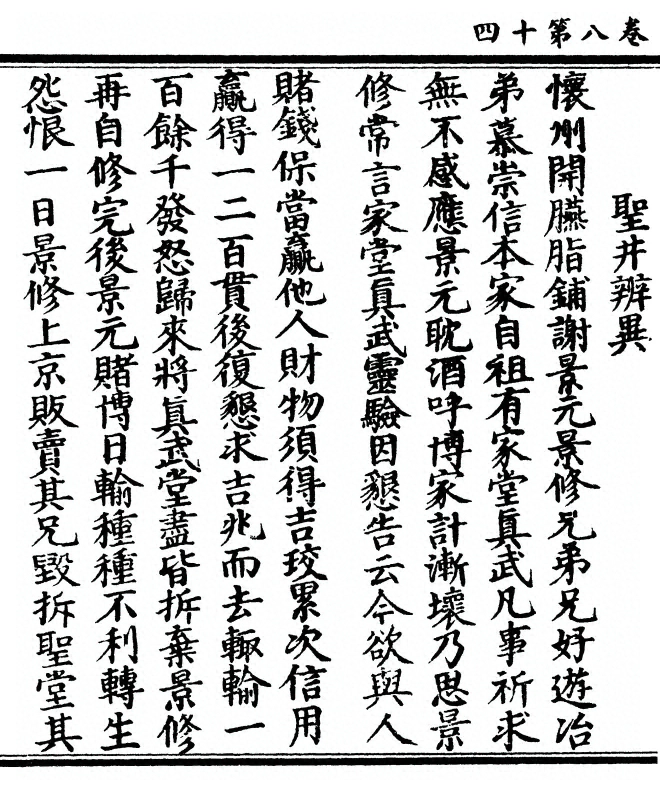 卷八第十四
聖井辨異
懷州開臙脂鋪謝景元景修兄弟兄好遊冶
弟慕崇信本家自祖有家堂真武凡事祈求
無不感應景元耽酒呼博家計漸壞乃思景
修常言家堂真武靈驗因懇告云今欲與人
賭錢保當贏他人財物須得吉珓累次信用
贏得一二百貫後復懇求吉兆而去輙輸一
百餘千發怒歸來將真武堂盡皆拆棄景修
再自修完後景元賭博日輸種種不利轉生
怨恨一日景修上京販賣其兄毀拆聖堂其